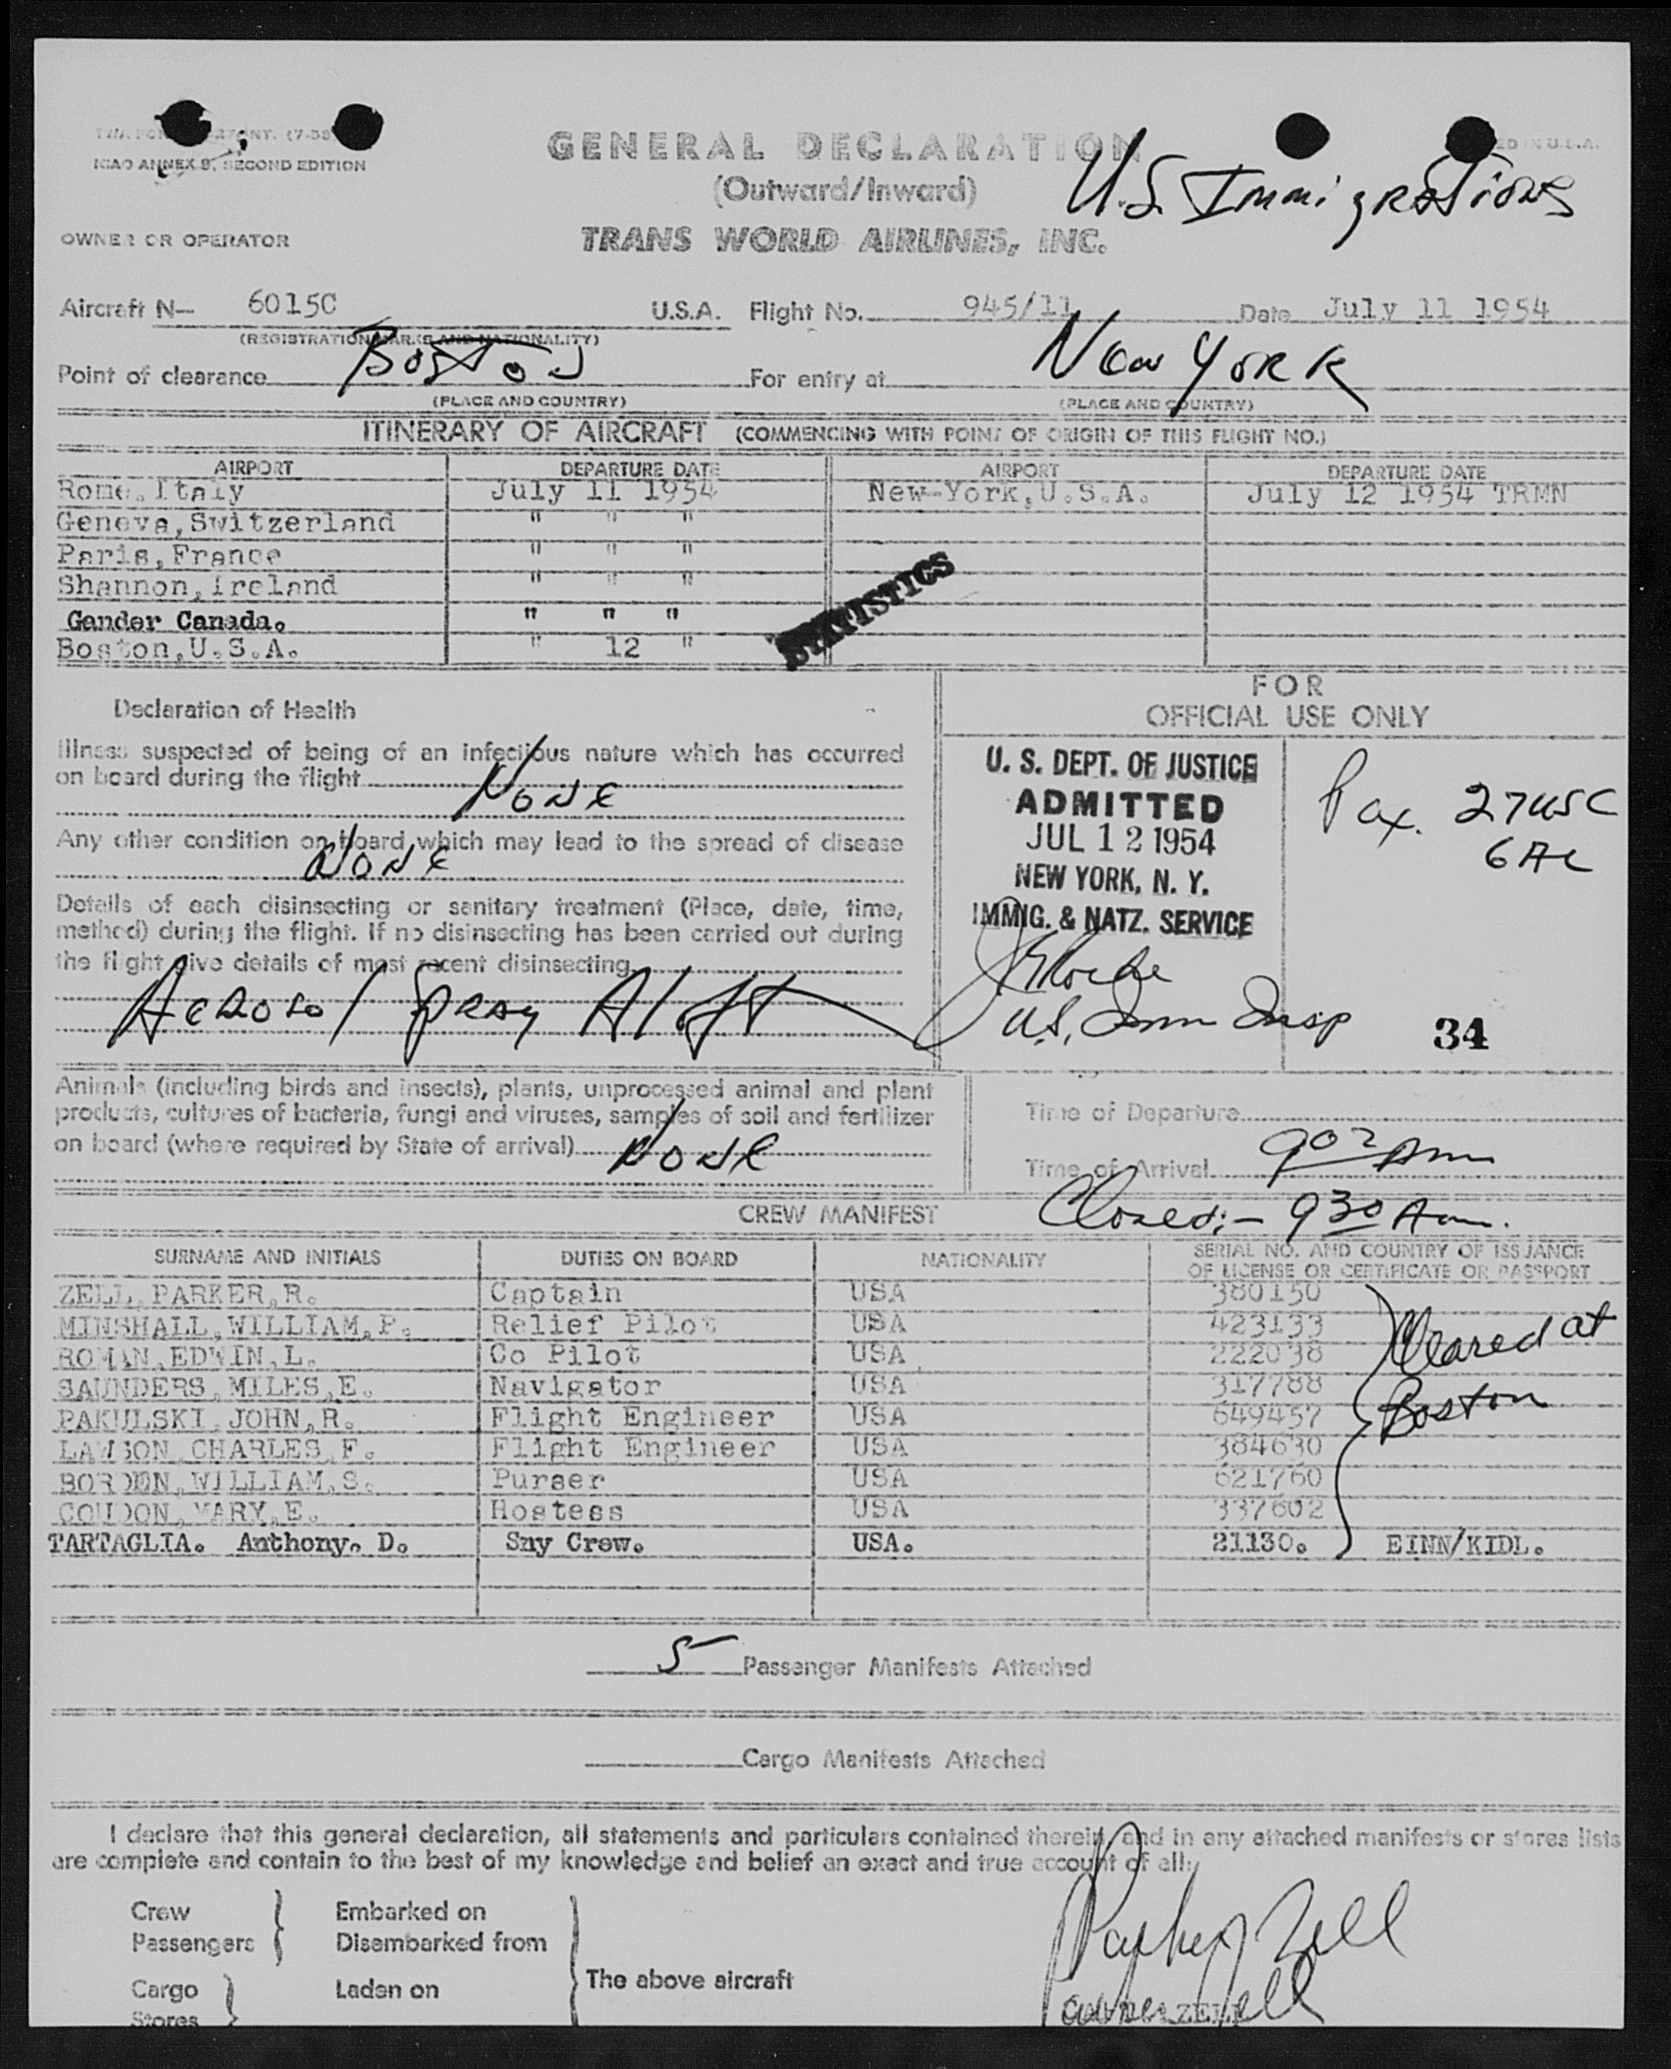 ICAO ANNEX 9, SECOND EDITION
GENERAL DECLARATION
(Outward/Inward)
U.S. Immigrations
OWNER OR OPERATOR
TRANS WORLD AIRLINES, INC.
Aircraft N— 6015C U.S.A. Flight No. 945/11 Date July 11 1954
(REGISTRATION MARKS AND NATIONALITY)
Point of clearance Boston For entry at New York
(PLACE AND COUNTRY) (PLACE AND COUNTRY)
ITINERARY OF AIRCRAFT (COMMENCING WITH POINT OF ORIGIN OF THIS FLIGHT NO.)
AIRPORT DEPARTURE DATE AIRPORT DEPARTURE DATE
Rome,Italy July 11 1954 New-York,U.S.A. July 12 1954 TRMN
Geneva,Switzerland " " "
Paris,France " " "
Shannon,Ireland " " "
Gander Canada. " " "
Boston,U.S.A. " 12 "
STATISTICS
Declaration of Health
Illness suspected of being of an infectious nature which has occurred
on board during the flight None
Any other condition on board which may lead to the spread of disease
None
Details of each disinsecting or sanitary treatment (Place, date, time,
method) during the flight. If no disinsecting has been carried out during
the flight give details of most recent disinsecting
Aerosol Spray Aloft
FOR
OFFICIAL USE ONLY
U. S. DEPT. OF JUSTICE
ADMITTED
JUL 12 1954
NEW YORK, N. Y.
IMMIG. & NATZ. SERVICE
U.S. Imm Insp
Pax. 27 USC
6 AL
34
Animals (including birds and insects), plants, unprocessed animal and plant
products, cultures of bacteria, fungi and viruses, samples of soil and fertilizer
on board (where required by State of arrival) None
Time of Departure
Time of Arrival 902 Am
Closed:- 930 Am.
CREW MANIFEST
SURNAME AND INITIALS DUTIES ON BOARD NATIONALITY SERIAL NO. AND COUNTRY OF ISSUANCE
OF LICENSE OR CERTIFICATE OR PASSPORT
ZELL,PARKER,R. Captain USA 380150
MINSHALL,WILLIAM,P. Relief Pilot USA 423133
ROMAN,EDWIN,L. Co Pilot USA 222038
SAUNDERS,MILES,E. Navigator USA 317788
PAKULSKI,JOHN,R. Flight Engineer USA 649457
LAWSON,CHARLES,F. Flight Engineer USA 384630
BORDEN,WILLIAM,S. Purser USA 621760
COUDON,MARY,E. Hostess USA 337602
TARTAGLIA. Anthony. D. Sny Crew. USA. 21130. EINN/KIDL.
Cleared at
Boston
5 Passenger Manifests Attached
Cargo Manifests Attached
I declare that this general declaration, all statements and particulars contained therein, and in any attached manifests or stores lists
are complete and contain to the best of my knowledge and belief an exact and true account of all:
Crew Embarked on
Passengers Disembarked from
The above aircraft
Cargo Laden on
Stores
Parker Zell